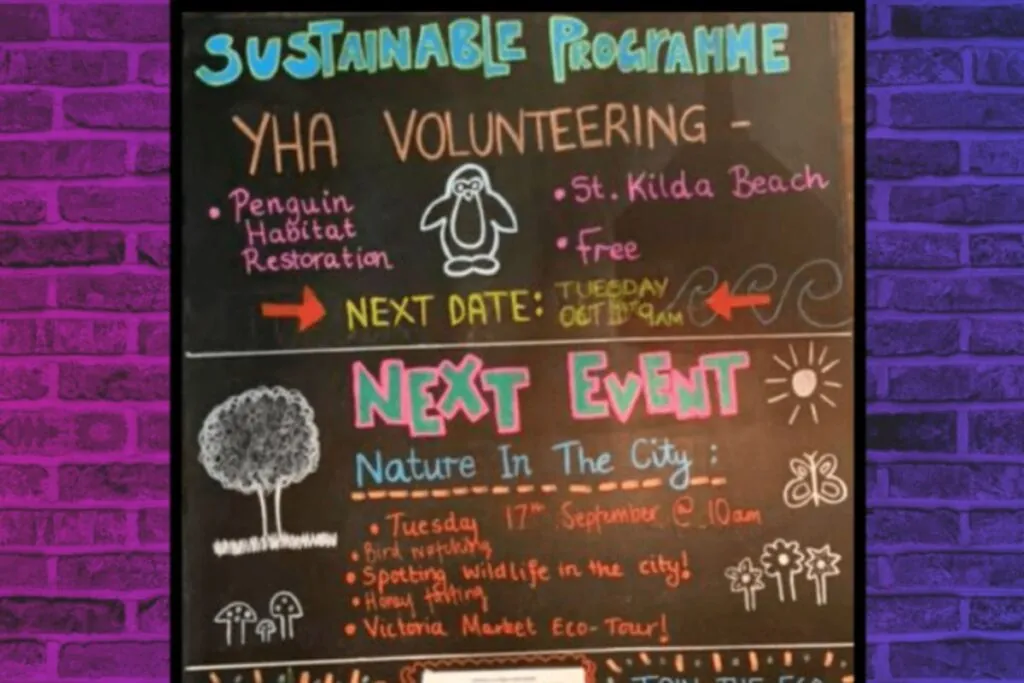 SUSTAINABLE PROGRAMME
YHA VOLUNTEERING -
• Penguin
Habitat
Restoration
• St. Kilda Beach
• Free
NEXT DATE:
TUESDAY
OCT 9AM
NEXT EVENT
Nature In The City:
• Tuesday 17th September @ 10am
• Bird watching
• Spotting wildlife in the city!
• Honey tasting
• Victoria Market Eco-Tour!
JOIN THE ECO